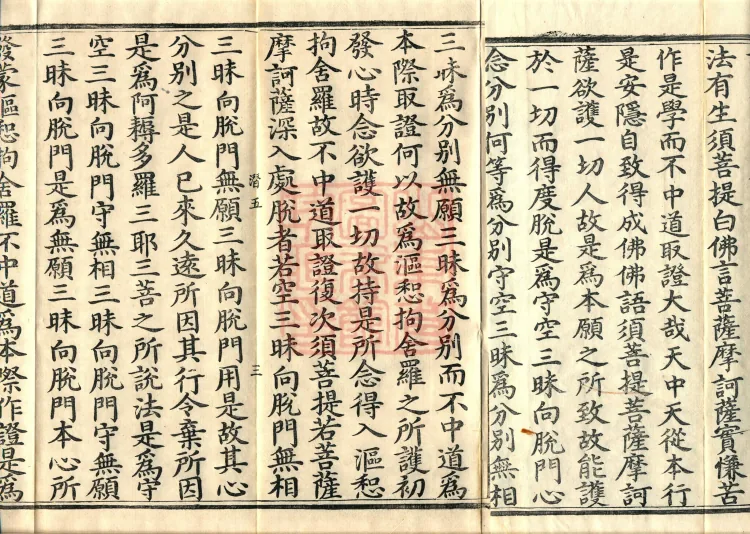 法有生須菩提白佛言菩薩摩訶薩實慊苦
作是學而不中道取證大哉天中天從本行
是安隱自致得成佛佛語須菩提菩薩摩訶
薩欲護一切人故是為本願之所致故能護
於一切而得度脫是為守空三昧向脫門心
念分別何等為分別守空三昧為分別無相
三昧為分別無願三昧為分別而不中道為
本際取證何以故為漚惒拘舍羅之所護初
發心時念欲護一切故持是所念得入漚惒
拘舍羅故不中道取證復次須菩提若菩薩
摩訶薩深入處脫者若空三昧向脫門無相
潛五 三
三昧向脫門無願三昧向脫門用是故其心
分別之是人已來久遠所因其行令棄所因
是為阿耨多羅三耶三菩之所說法是為守
空三昧向脫門守無相三昧向脫門守無願
三昧向脫門是為無願三昧向脫門本心所
發蒙漚惒拘舍羅不中道為本際作證是為